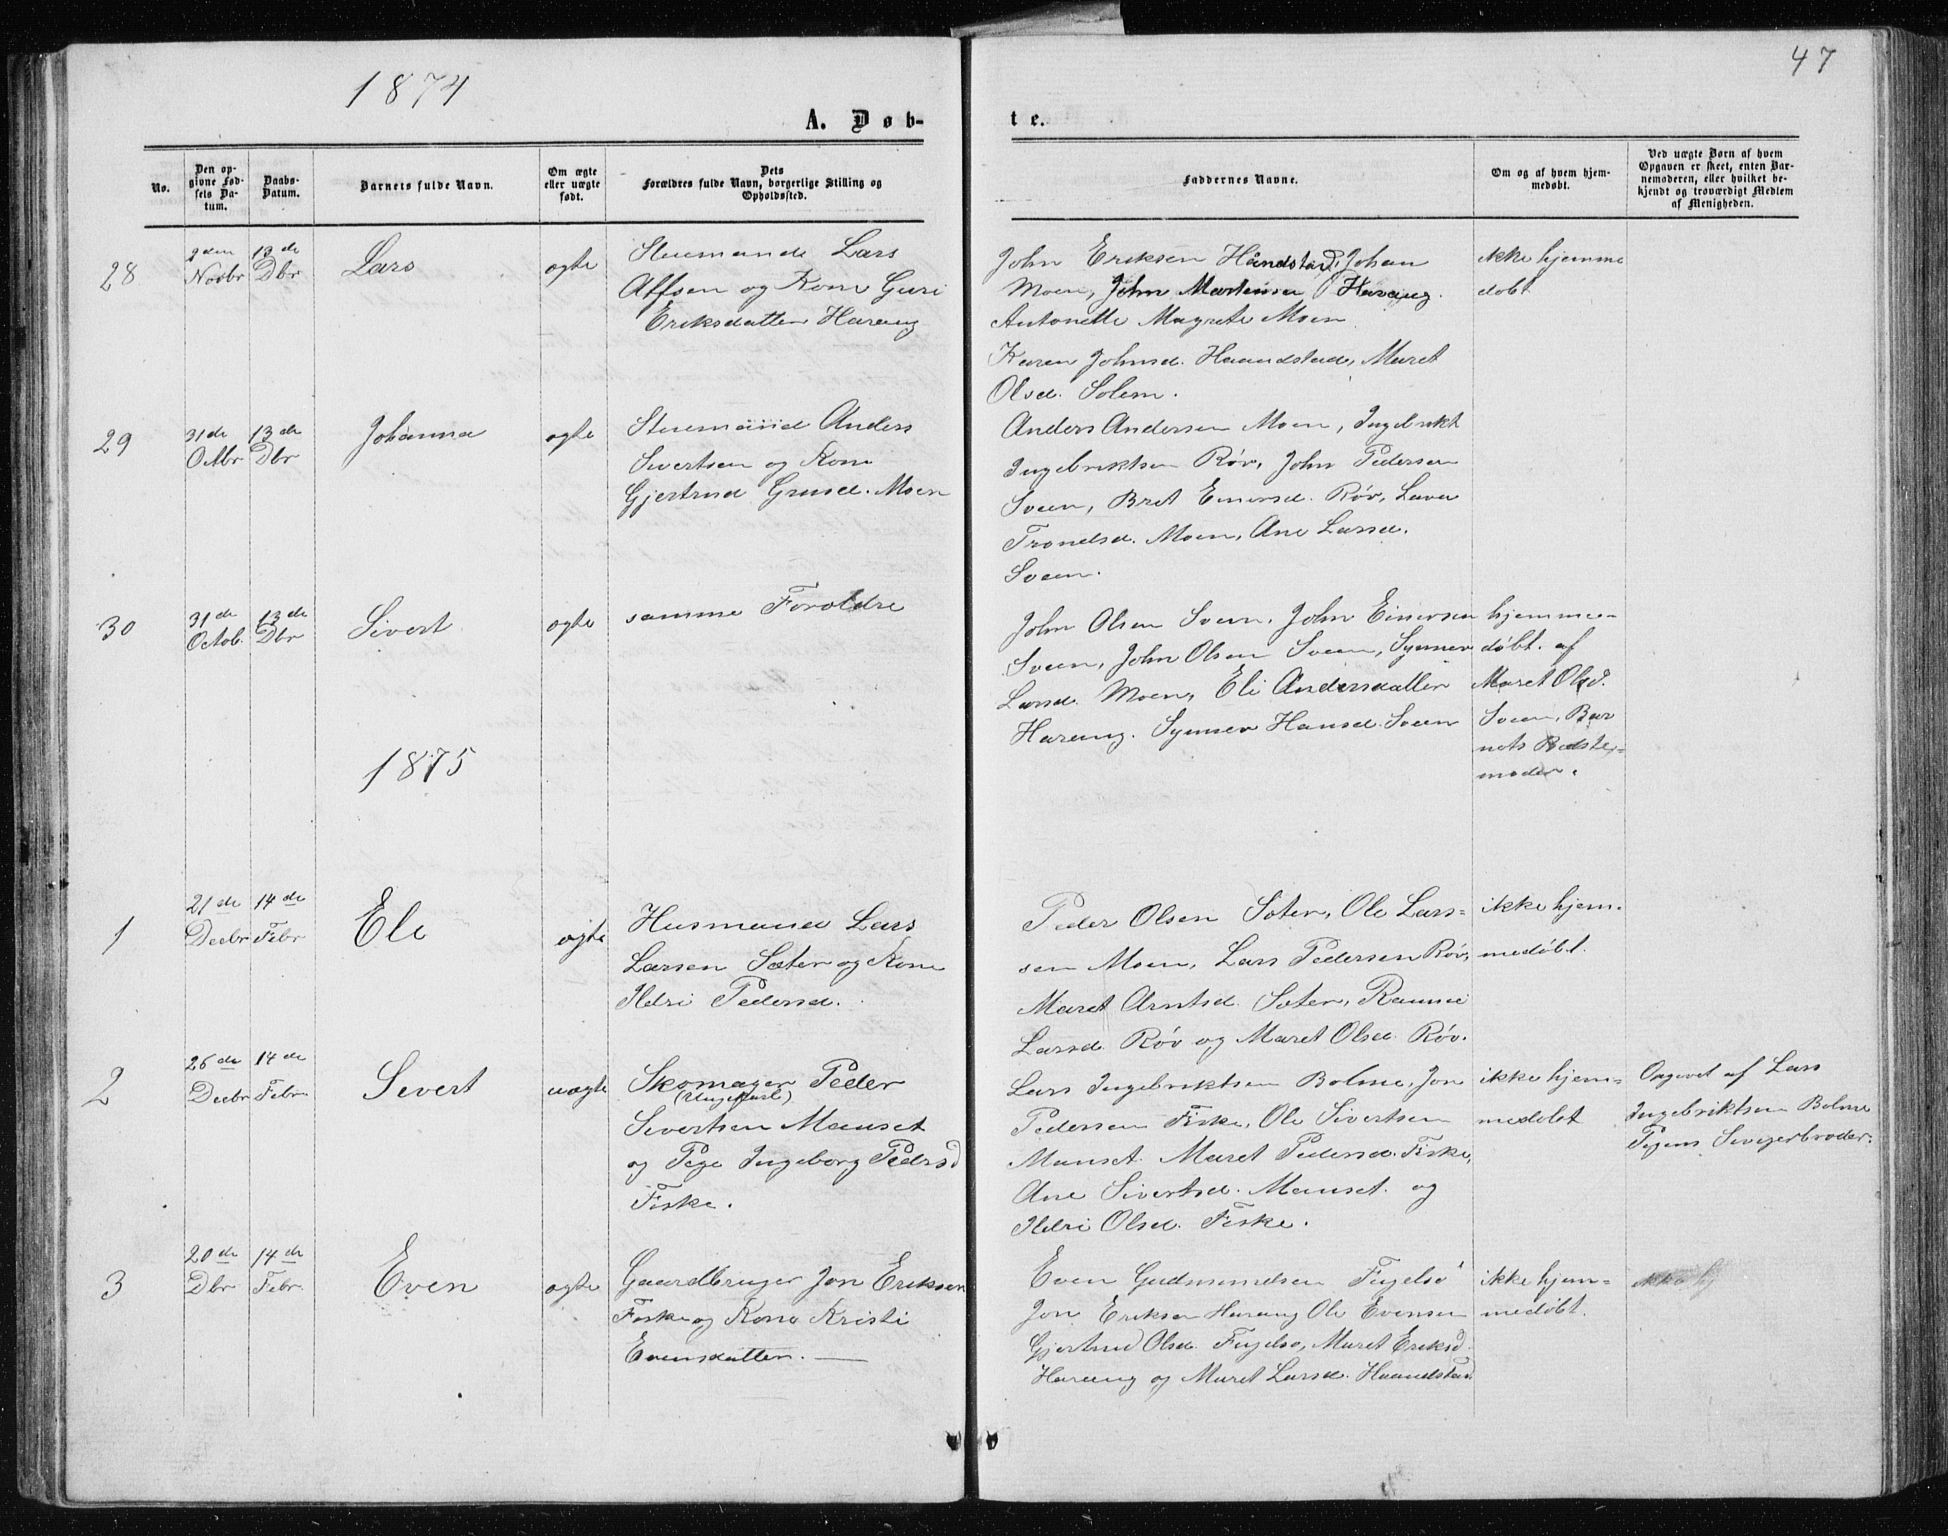 1874
47
A. Døb-
te.
No.
Den op-
givne Fød-
sels Da-
tum.
Daabs-
Datum.
Barnets fulde Navn.
Om ægte
eller uægte
født.
Dets
Forældres fulde Navn, borgerlige Stilling og
Opholdssted.
Faddernes Navne.
Om og af hvem hjem-
medøbt.
Ved uægte Børn af hvem
Opgaven er skeet, enten Bar-
nemoderen, eller hvilket be-
kjendt og troværdigt Medlem
af Menigheden.
28
Novbr
13de
Dbr
Lars
ægte
Lars
og Kone Guri
Eriksdatter Harang
John Eriksen Håndstad, Johan
Moen, John Martensen Harang.
Antonette Magrete Moen
Karen Johnsd. Haandstad, Maret
Olsd. Solem.
ikke hjemme
døbt
29
31de
Octbr
13de
Dbr
Johanna
ægte
Anders
Sivertsen og Kone
Gjertrud Moen
Anders Andersen Moen, Ingebrikt
Ingebriktsen Røv, John Pedersen
Sveen, Bret Einersd. Røv,
Trondsd. Moen, Ane Larsd.
Sveen.
30
31de
Octob.
13de
Dbr
Sivert
ægte
samme Forældre
John Olsen Sveen, John Einersen
Sveen, John Olsen Sveen, Synnev
Larsd. Moen, Eli Andersdatter
Harang. Synnev Hansd. Sveen
hjemme-
døbt. af
Maret Olsd.
Sveen, Bar
nets Bedste-
moder.
1875
1
21de
Decbr
14de
Febr
Eli
ægte
Husmand Lars
Larsen Sæter og Kone
Ildri Pedersd.
Peder Olsen Sæter, Ole Lars-
sen Moen, Lars Pedersen Røv,
Maret Arntsd. Sæter,
Larsd. Røv og Maret Olsd. Røv.
ikke hjem-
medøbt.
2
26de
Decbr
14de
Febr.
Sivert
uægte
Skomager Peder
(Ungkarl)
Sivertsen Manset
og Pige Ingeborg Pedersd
Fiske.
Lars Ingebriktsen Bolme, Jon
Pedersen Fiske, Ole Sivertsen
Manset. Maret Pedersd. Fiske,
Ane Sivertsd. Manset. og
Ildri Olsd. Fiske.
ikke hjem-
medøbt
Opgivet af Lars
Ingebriktsen Bolme
Pigens Svigerbroder.
3
20de
Dbr
14de
Febr.
Even
ægte
Gaardbruger Jon Eriksen
Fiske og Kone Kristi
Evensdatter.
Even Gudmundsen Fugelsø
Jon Eriksen Harang Ole Evensen
Gjertrud Olsd. Fugelsø, Maret Eriksd.
Harang og Maret Larsd. Haandstad
ikke hjem-
medøbt.
ikke hj